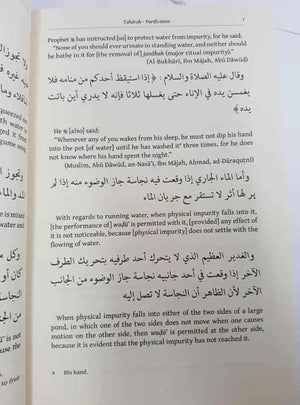 Tahārah - Purification 7
Prophet ﷺ has instructed [us] to protect water from impurity, for he said:
"None of you should ever urinate in standing water, and neither should
he bathe in it for [the removal of] janābah (major ritual impurity)."
(Al-Bukhārī, Ibn Mājah, Abū Dāwūd)
وقال عليه الصلاة والسلام : ﴿ إذا استيقظ أحدكم من منامه فلا
يغمسن يده في الإناء حتى يغسلها ثلاثا فإنه لا يدري أين باتت
يده ﴾
He ﷺ [also] said:
"Whenever any of you wakes from his sleep, he must not dip his hand
into the pot [of water] until he has washed it three times, for he does
not know where his hand spent the night."
(Muslim, Abū Dāwūd, an-Nasā'ī, Ibn Mājah, Aḥmad, ad-Dāraquṭnī)
وأما الماء الجاري إذا وقعت فيه نجاسة جاز الوضوء منه إذا لم
ير لها أثر لأنها لا تستقر مع جريان الماء
With regards to running water, when physical impurity falls into it,
[the performance of] wuḍū' is permitted with it, [provided] any effect of
it is not noticeable, because [physical impurity] does not settle with the
flowing of water.
والغدير العظيم الذي لا يتحرك أحد طرفيه بتحريك الطرف
الآخر إذا وقعت في أحد جانبيه نجاسة جاز الوضوء من الجانب
الآخر لأن الظاهر أن النجاسة لا تصل إليه
When physical impurity falls into either of the two sides of a large
pond, in which one of the two sides does not move when one causes
motion on the other side, then wuḍū' is permitted at the other side,
because it is evident that the physical impurity has not reached it.
9 His hand.